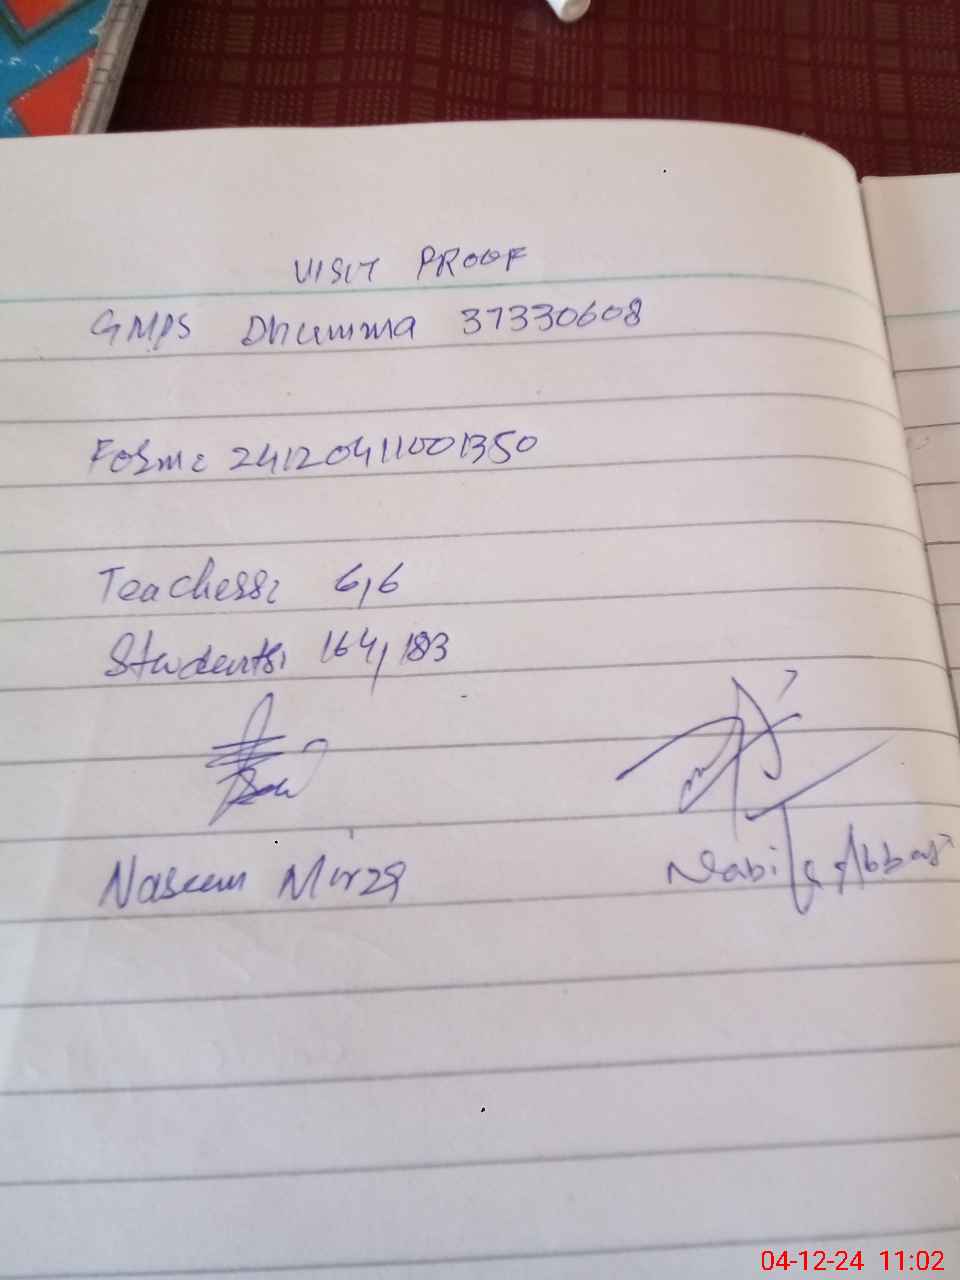 VISIT PROOF
GMPS Dhumma 37330608
Form: 24120411001350
Teachers: 6,6
Students: 164, 183
Naseem Mirza
Nabila Abbasi
04-12-24 11:02